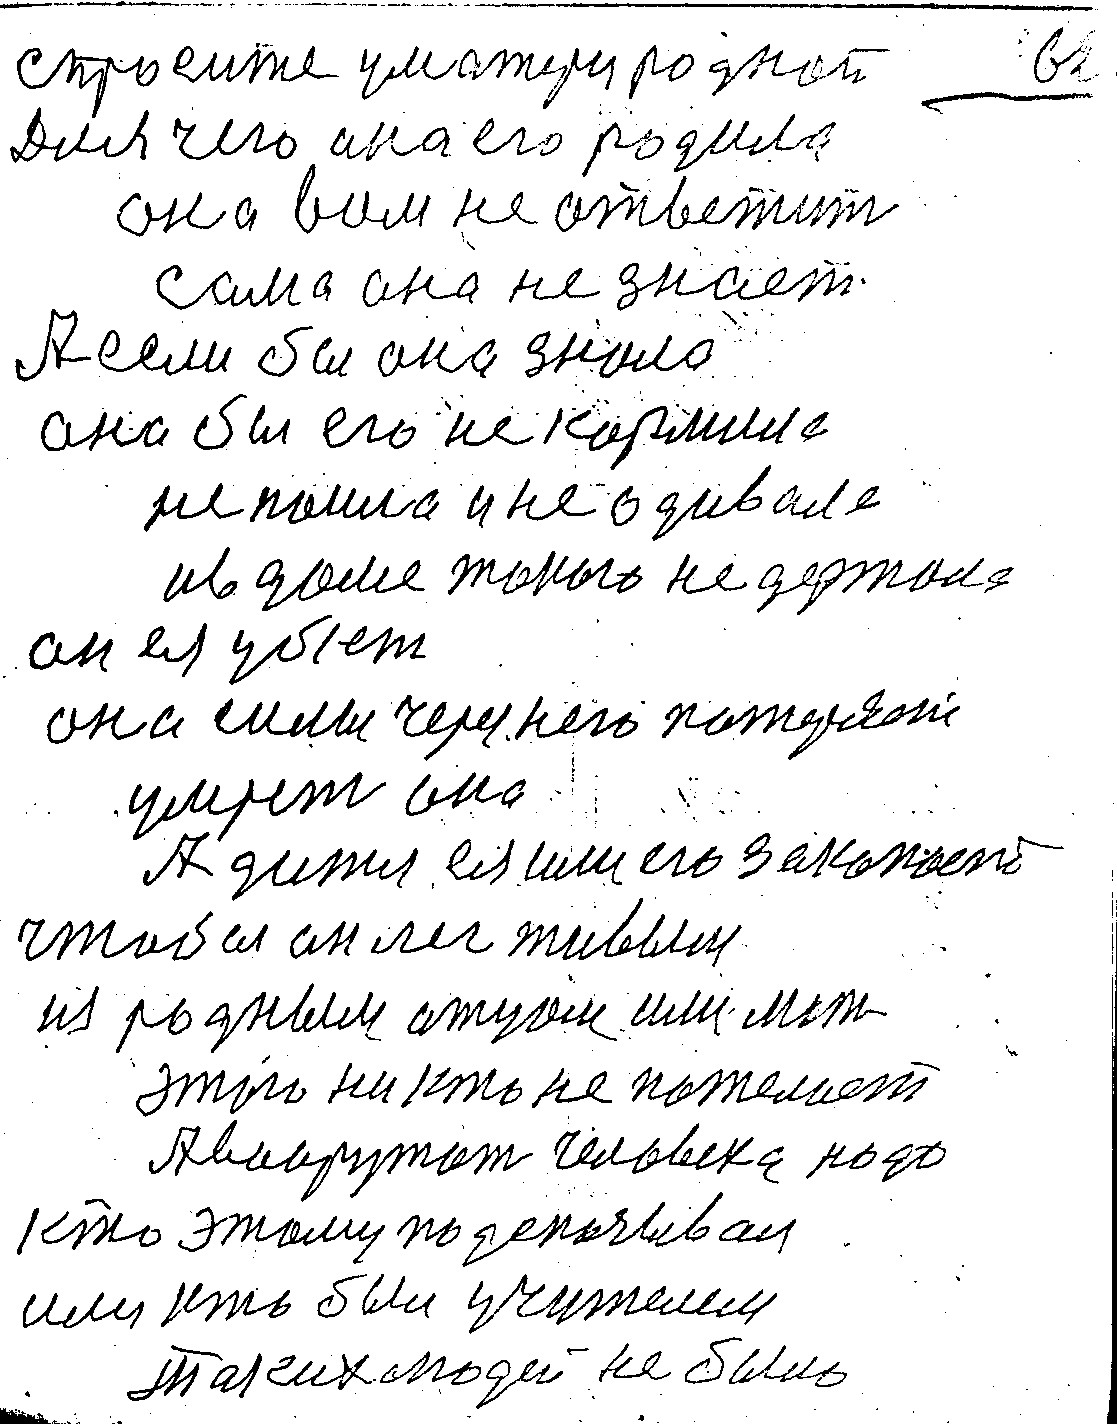 спросите у матери родной 62
Для чего она его родила
она вам не ответит
сама она не знает.
А если бы она знала
она бы его не кормила
не поила и не одивала
и в доме такого не держала
он ея убьет
она силы через него потеряет
умрет она
А дитя ея или его закопает
чтобы он лег живым
из родным отцом или мат
этого никто не пожелает
А вооружат человека надо
кто этому подсказывал
или кто был учителем
таких людей не было